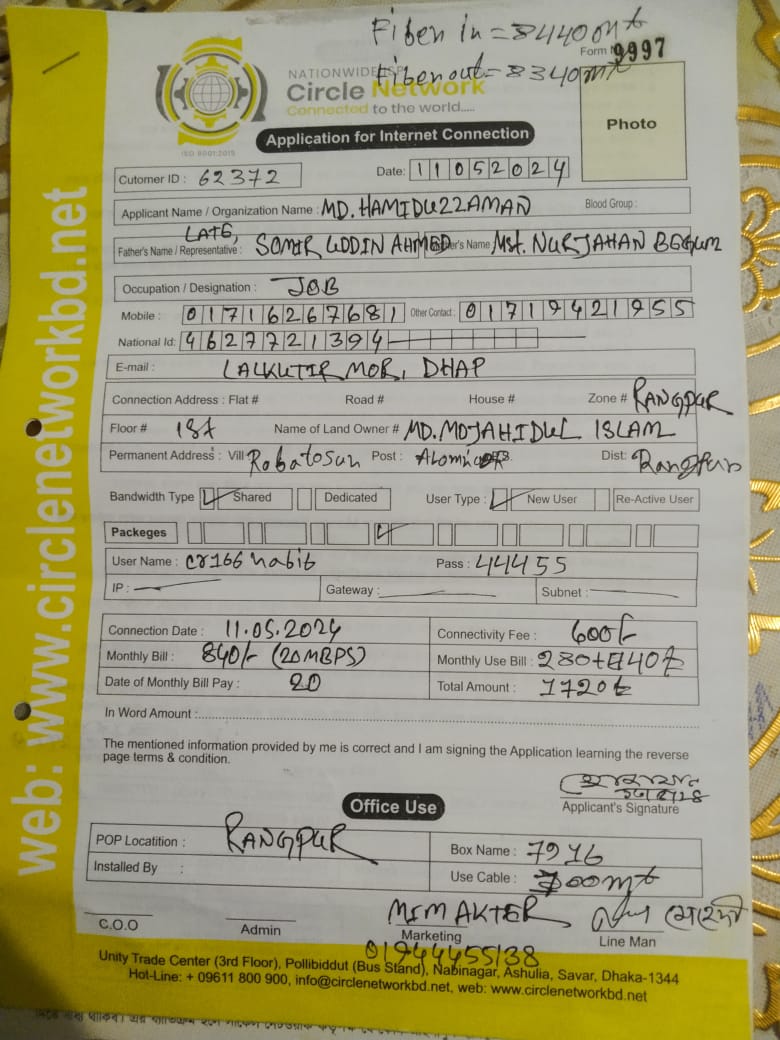 Fiber in = 8440 mt
Form 9997
NATIONWIDE ISP Fiber out = 8340 mt
Circle Network
Connected to the world.....
ISO 9001:2015
Application for Internet Connection
Photo
Cutomer ID : 62372 Date: 11052024
Applicant Name / Organization Name : MD. HAMIDUZZAMAN Blood Group :
LATE,
Father's Name / Representative : SOMIR UDDIN AHMED Name Mst. NURJAHAN BEGUM
Occupation / Designation : JOB
Mobile : 01716267681 Other Contact : 01719421955
National Id: 4627721394
E-mail : LALKUTIR MOR, DHAP
Connection Address : Flat # Road # House # Zone # RANGPUR
Floor # 1st Name of Land Owner # MD. MOJAHIDUL ISLAM
Permanent Address : Vill Robatosun Post : Dist: Rangpur
Bandwidth Type Shared Dedicated User Type : New User Re-Active User
Packeges
User Name : cr166 habib Pass : 44455
IP : Gateway : Subnet :
Connection Date : 11.05.2024 Connectivity Fee : 600/-
Monthly Bill : 840/- (20MBPS) Monthly Use Bill : 280+
Date of Monthly Bill Pay : 20 Total Amount : 1720
In Word Amount :
The mentioned information provided by me is correct and I am signing the Application learning the reverse
page terms & condition.
Applicant's Signature
Office Use
POP Locatition : RANGPUR Box Name : 7916
Installed By : Use Cable : 100mt
C.O.O Admin MIM AKTER Marketing Line Man
01944455138
Unity Trade Center (3rd Floor), Pollibiddut (Bus Stand), Nabinagar, Ashulia, Savar, Dhaka-1344
Hot-Line: + 09611 800 900, info@circlenetworkbd.net, web: www.circlenetworkbd.net
web: www.circlenetworkbd.net